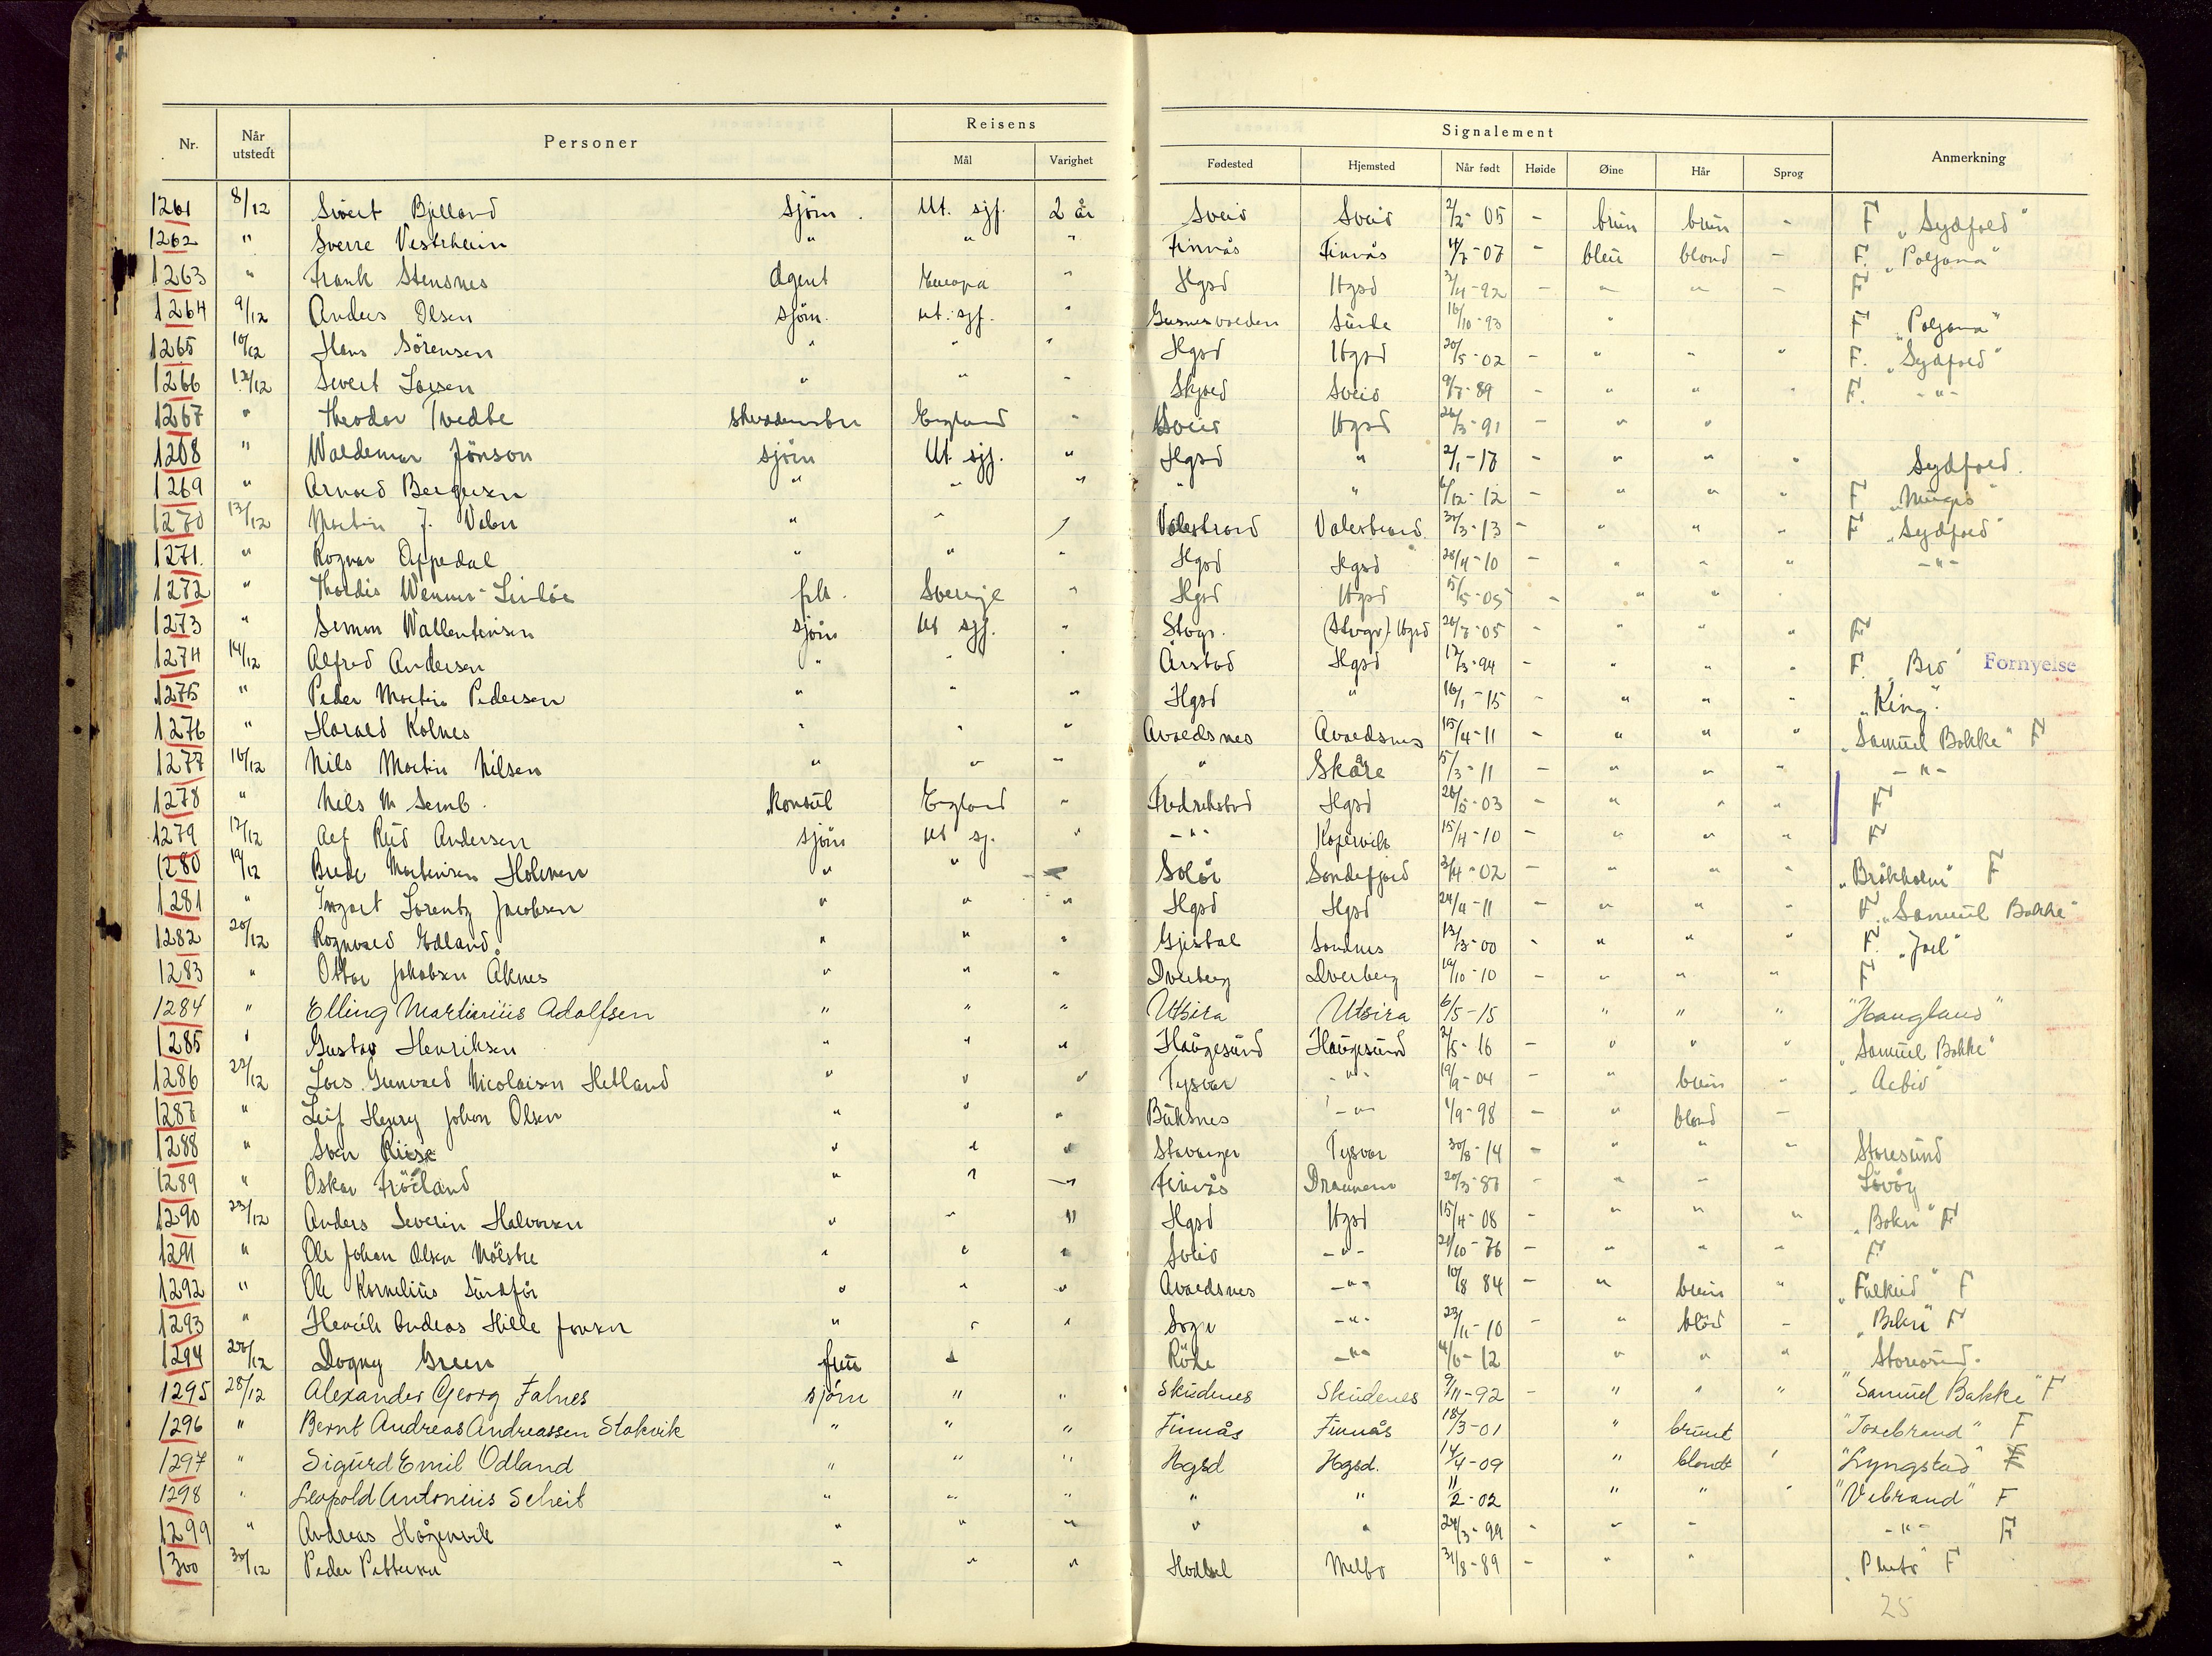 Nr. Når utstedt Personer Reisens Mål Varighet Signalement Fødested Hjemsted Når født Høide Øine Hår Sprog Anmerkning
1261 8/12 Sivert Bjelland sjöm. Ut. sjf. 2 år Sveio Sveio 2/2-05 - brun brun - F „Sydfold"
1262 " Sverre Vestrheim " " " Finnås Finnås 4/7-07 - bleu blond - F. „Poljana"
1263 " Frank Stensnes Agent Europa " Hgsd Hgsd 2/4-92 - " " - F
1264 9/12 Anders Olsen sjöm. ut. sjf. " Sunde 16/10-93 " F „Poljana"
1265 10/12 Hans Sörensen " " " Hgsd Hgsd 20/5-02 - " " " F. „Sydfold"
1266 12/12 Sivert Larsen " " " Skjold Sveio 9/7-89 - " " " F. -"-
1267 " Theodor Tvedte England " Sveio Hgsd 26/3-91 - " "
1268 " Waldemar Jönson sjöm Ut. sjf. " Hgsd " 2/1-17 - " " " Sydfold.
1269 " Arnold Bergesen " " " " " 6/12-12 - " " " F
1270 13/12 Martin J. Valen " " " Valestrand Valestrand 30/3-13 - " " " F „Sydfold"
1271. " Ragnar Appedal " " " Hgsd Hgsd 28/4-10 " " " -"-
1272 " Thordis Wenner- frk. Sverige " Hgsd Hgsd 5/5-05 - " "
1273 " Simon Wallentinsen sjöm Ut sjf. " Stvgr. (Stvgr) Hgsd 26/7-05 - " " " F
1274 14/12 Alfred Andersen " " " Årstad Hgsd 12/3-94 - " " " F. „Bro" Fornyelse
1275 " Peder Martin Pedersen " " " Hgsd " 16/1-15 - " " " „King".
1276 " Harald Kolnes " " " Avaldsnes Avaldsnes 15/4-11 - " " " „Samuel Bakke" F
1277 16/12 Nils Martin Nilsen " " " " Skåre 5/3-11 - " " " -"-
1278 " Nils M Semb. Konsul England " Fredrikstad Hgsd 26/5-03 - " " " F
1279 17/12 Alf Rud Andersen sjöm Ut sj. " -"- Kopervik 15/4-10 - " " " F
1280 19/12 Brede Martinsen Holmen " " " Solör Sandefjord 3/4-02 - " " " „Bråkholm" F
1281 " Ingvart Lorentz Jacobsen " " " Hgsd Hgsd 24/4-11 - " " " F. „Samuel Bakke"
1282 20/12 Ragnvald Edland " " " Gjestal Sandnes 13/3-00 - " " " F. „Jarl"
1283 " Ottar Jakobsen Åknes " " " Dverberg Dverberg 19/10-10 - " " " F
1284 " Elling Martinius Adolfsen " " " Utsira Utsira 6/5-15 " " " "Haugland"
1285 " Gustav Henriksen " " " Haugesund Haugesund 2/5-16 - " " " „Samuel Bakke"
1286 22/12 Lars Gunvald Nicolaisen Hetland " " " Tysvær -"- 19/9-04 - " brun " „
1287 " Leif Henry Johan Olsen " " " Buksnes -"- 1/9-98 - " blond -
1288 " Sven Riise " " " Stavanger Tysvær 30/8-14 - " " " Storesund
1289 " Oskar Fröiland " " " Finnås 20/3-87 - " " Lövöy
1290 23/12 Anders Severin Halvorsen " " " Hgsd Hgsd 15/4-08 - " " " „Bokn" F
1291 " Ole Johan Olsen Mölstre " " " Sveio -"- 21/10-76 - " " " F
1292 " Ole Kornelius Sundför " " " Avaldsnes -"- 10/8 84 - " brun " „Falkeid" F
1293 " Henrik Andreas Hille Jonsen " " " Sogn -"- 23/11-10 - " blond - „Bokn" F
1294 27/12 Dagny Green frue " Röde -"- 4/6-12 " " " Storesund.
1295 28/12 Alexander Georg Falnes sjöm " " Skudenes Skudenes 9/11-92 - " " " "Samuel Bakke" F
1296 " Bernt Andreas Andreassen Stokvik " " " Finnås Finnås 18/3-01 " brunt "Josebrand" F
1297 " Sigurd Emil Odland " " " Hgsd Hgsd. 14/4-09 " blondt " "Lyngstad" F
1298 " Leopold Antonius Scheit " " " " " 11/2-02 " " " "Vebrand" F
1299 " Andreas Hågenvik " " " " " 24/3-99 - " " -"- F
1300 30/12 Peder Pettersen " " " Melbo 31/8-89 - " " „Pluto" F
25